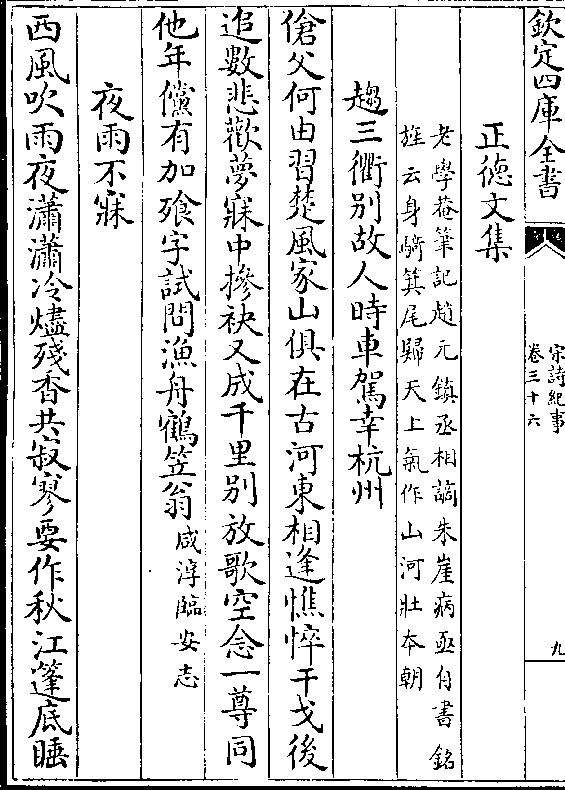 欽定四庫全書
宋詩紀事
卷三十六
九
正德文集
老學菴筆記趙元鎮丞相謫朱崖病亟自書銘
旌云身騎箕尾歸天上氣作山河壯本朝
趨三衢别故人時車駕幸杭州
傖父何由習楚風家山俱在古河東相逢憔悴干戈後
追數悲歡夢寐中摻袂又成千里别放歌空念一尊同
他年儻有加飱字試問漁舟鶴笠翁咸淳臨安志
夜雨不寐
西風吹雨夜瀟瀟冷燼殘香共寂寥要作秋江篷底睡